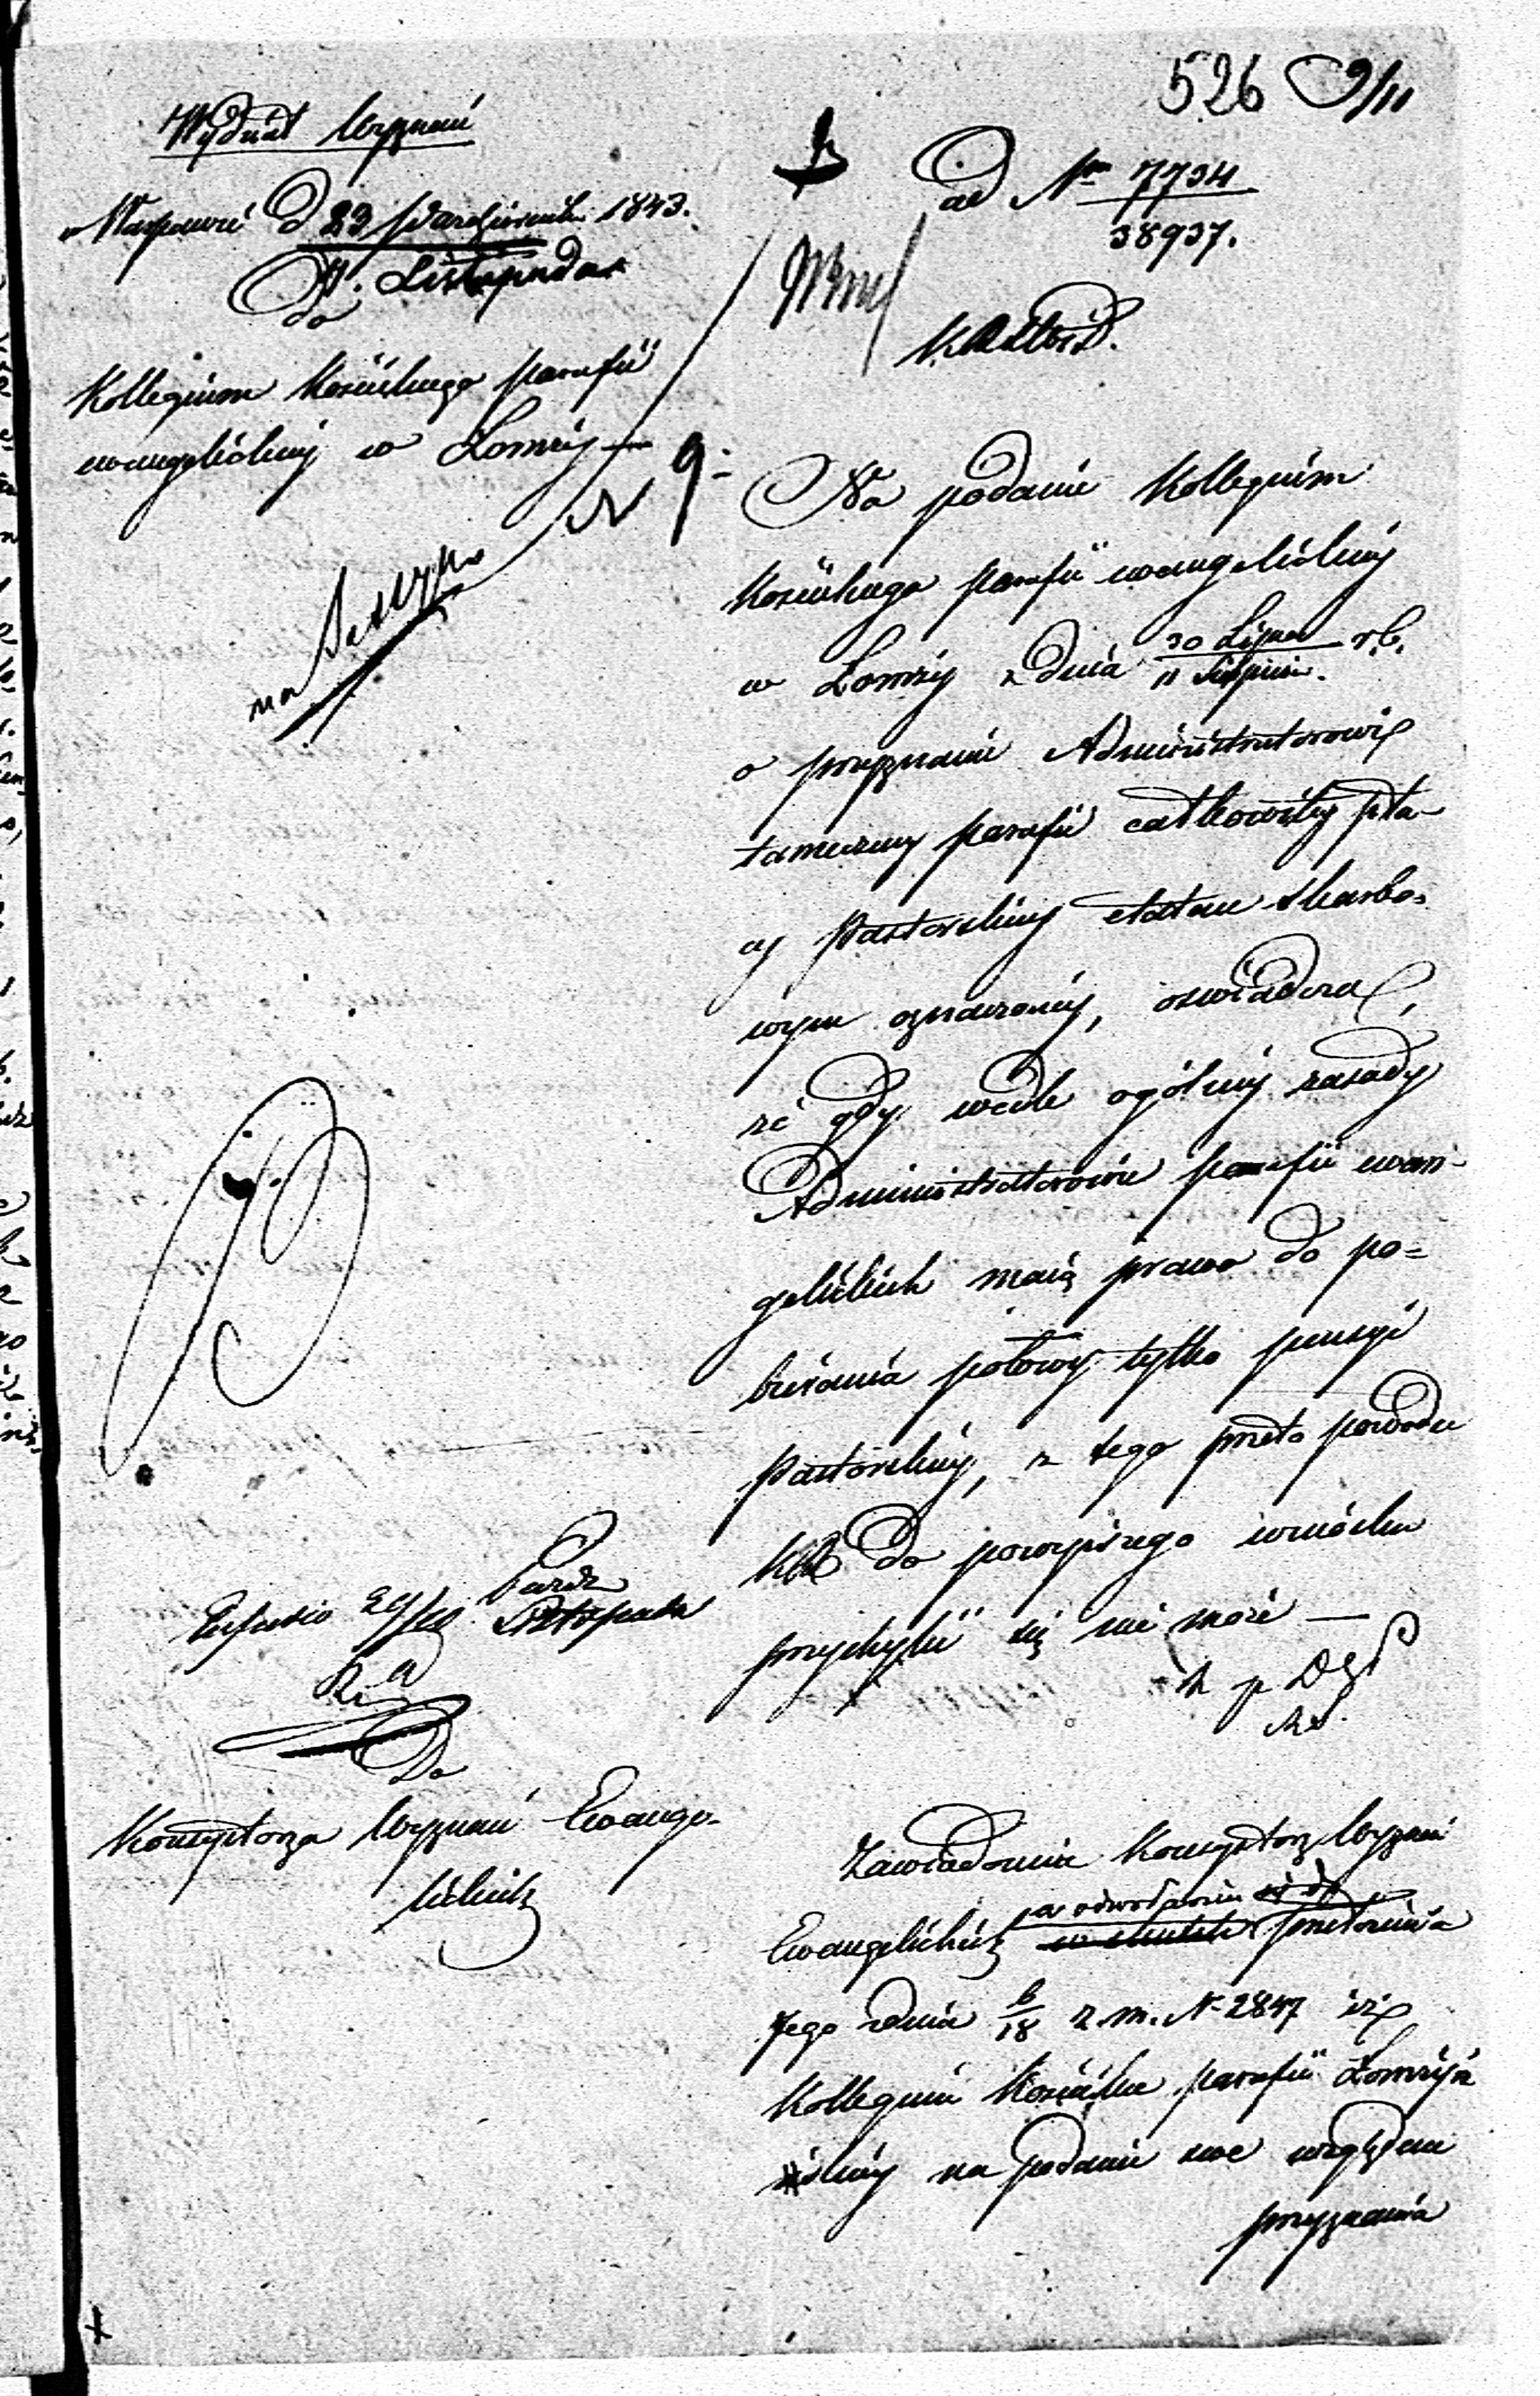 526 9/11
Wydział Wyznań
w Warszawie d 23 Października 1843.
4. Listopada
do
Kollegium Kościelnego parafii
ewangelickiéj w Łomży
ad Nr 7734
38937.
N 9.
na
Na podanie Kollegium
Kościelnego parafii ewangelickiéj
w Łomży z dnia 30 Lipca r.b.
11 Sierpnia.
o przyznanie Administratorowi
tameczney parafii całkowitéj pła-
cy Pastorskiéj etatem skarbo-
wym oznaczonéj, oswiadcza,
że gdy wedle ogólnéj zasady
Administratorowie parafii ewan-
gelickich maią prawo do po-
bierania połowy tylko pensyi
Pastorskiéj, z tego przeto powodu
KR do powyższego wniosku
przychylić się nie może —
Listopada
Do
Konsystorza Wyznań Ewange-
lickich
Zawiadomia Konsystorz Wyznań
Ewangelickich w skutek przełożenia
Jego z dnia 6/18 z. m. N 2847 iż
Kollegium Kościelne parafii Łomżyń
skiéj na podanie swe względem
przyznania